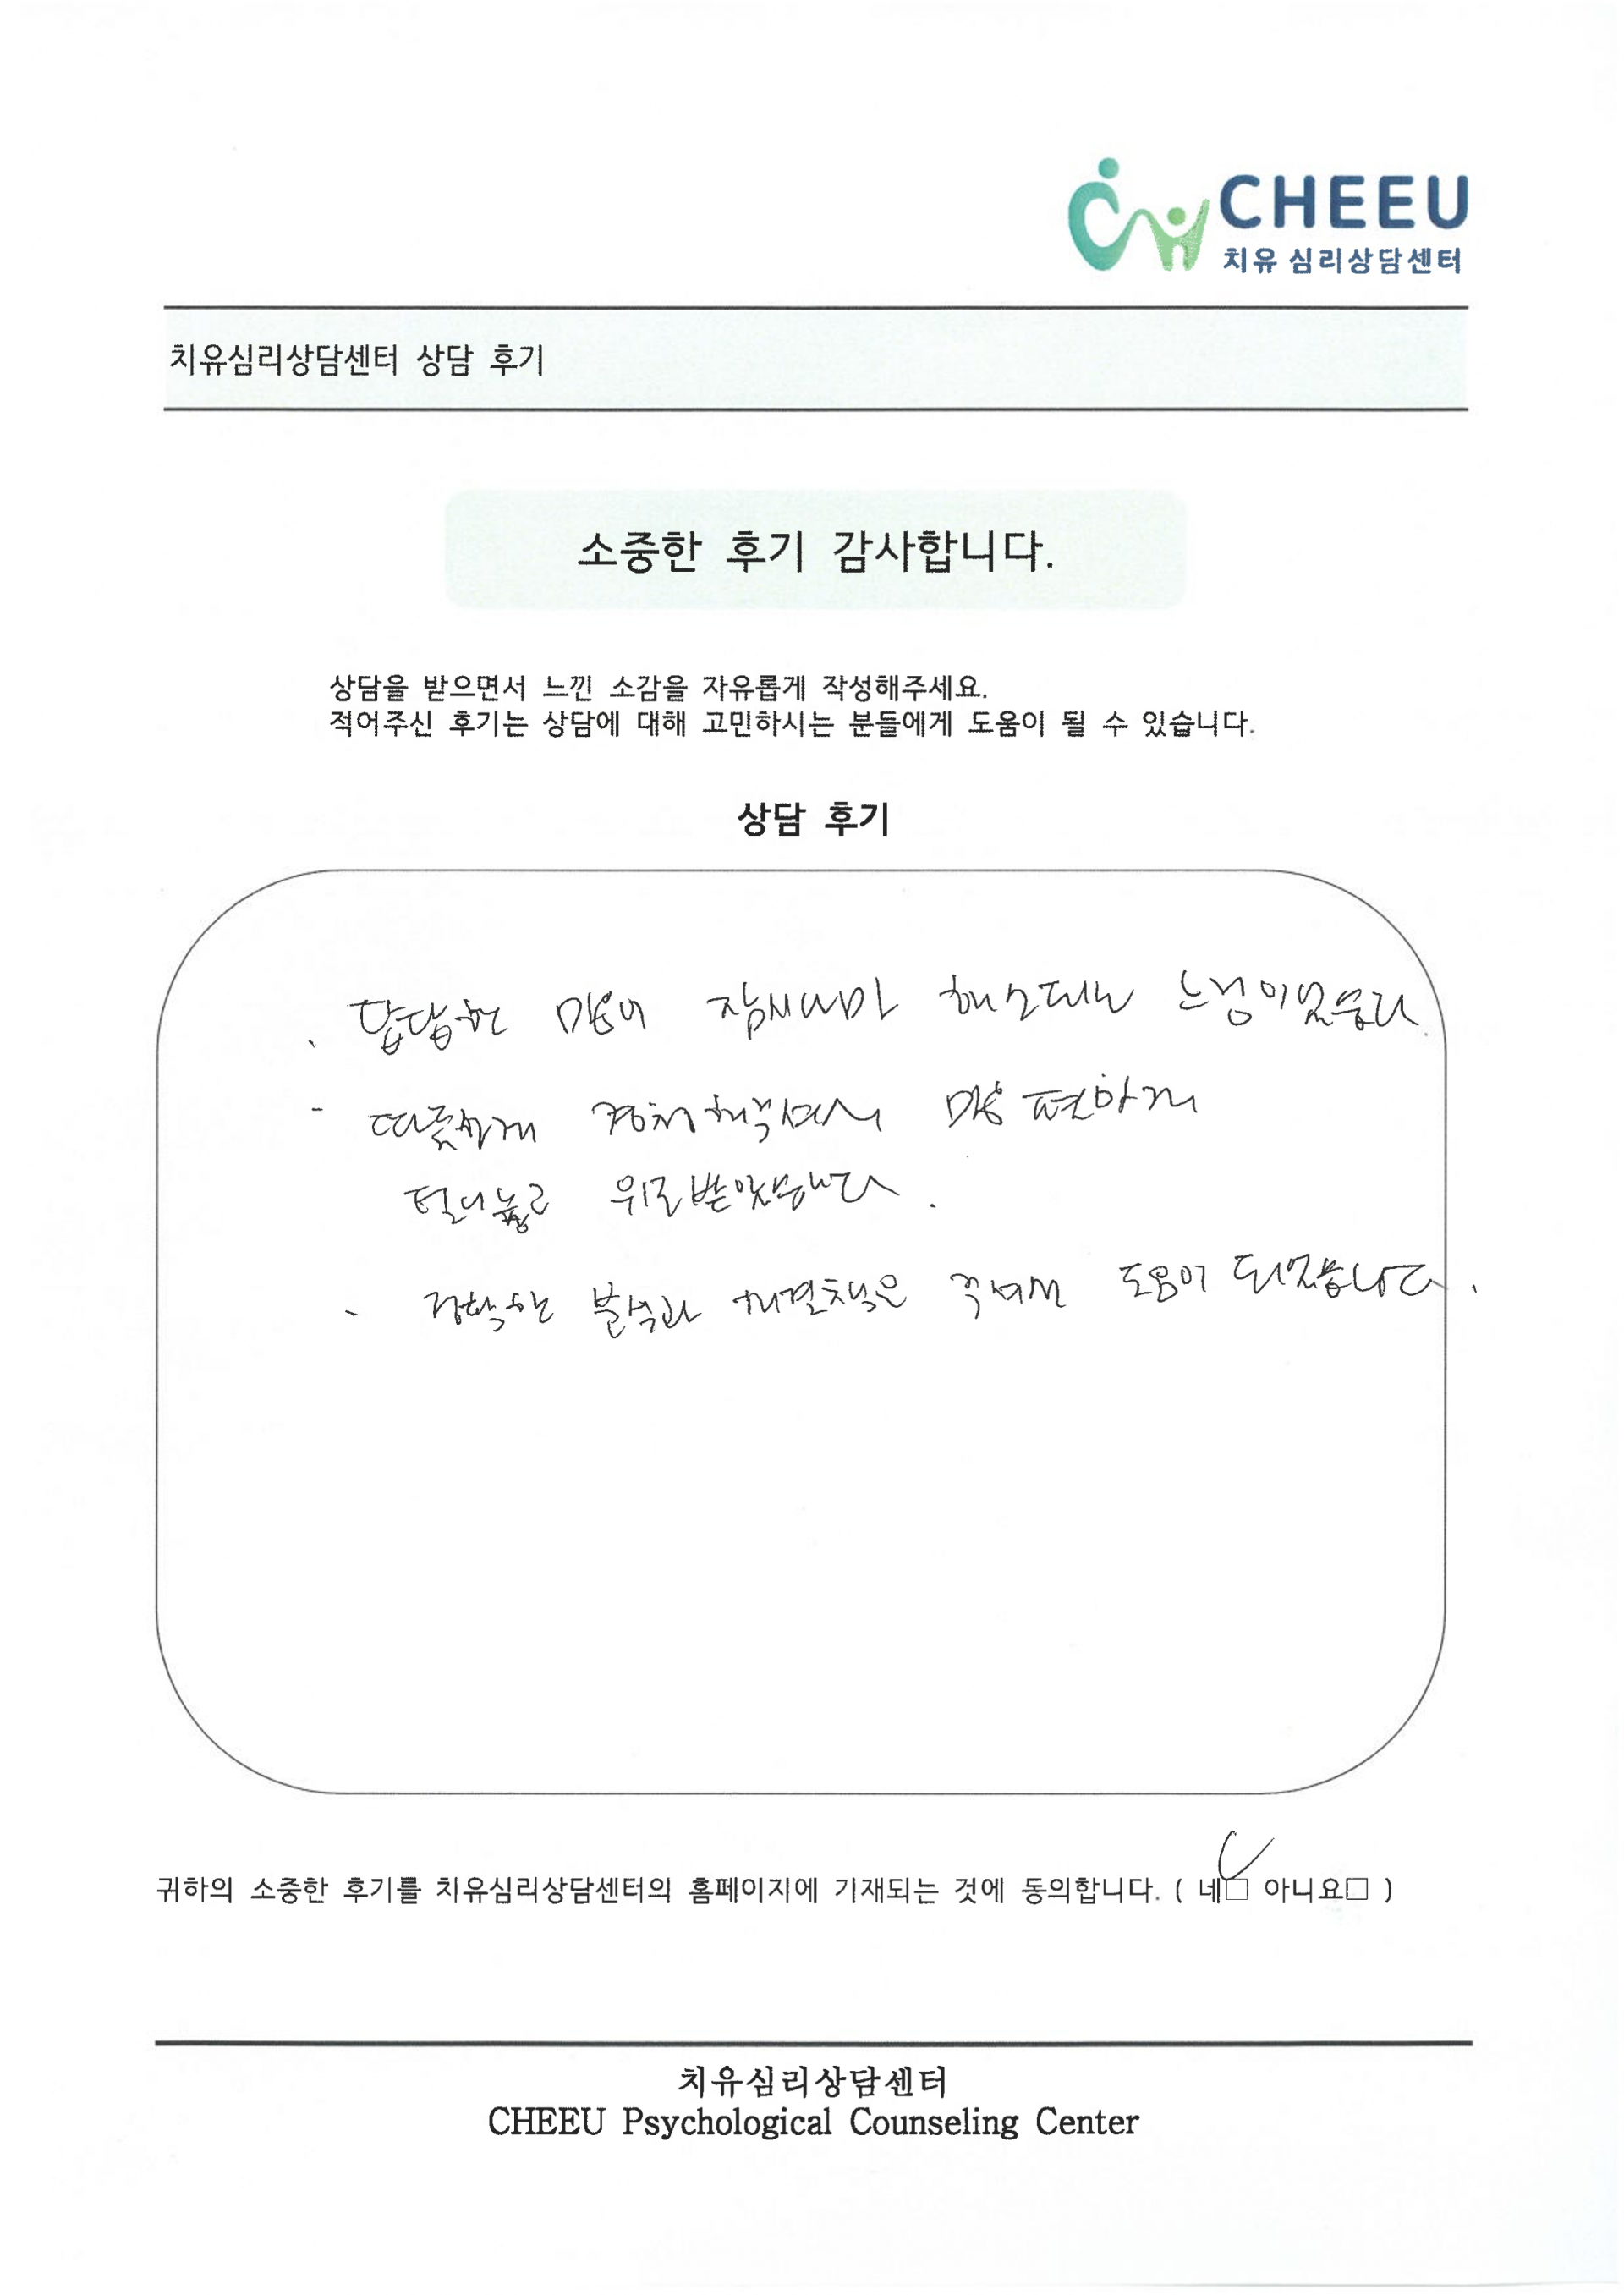 CHEEU
치유 심리상담센터
치유심리상담센터 상담 후기
소중한 후기 감사합니다.
상담을 받으면서 느낀 소감을 자유롭게 작성해주세요.
적어주신 후기는 상담에 대해 고민하시는 분들에게 도움이 될 수 있습니다.
상담 후기
. 답답한 맘이 잠시나마 해소되는 느낌이었습니다
- 따뜻하게 경청해주셔서 맘 편하게
털어놓고 위로받았습니다.
- 정확한 분석과 해결책을 주셔서 도움이 되었습니다.
귀하의 소중한 후기를 치유심리상담센터의 홈페이지에 기재되는 것에 동의합니다. ( 네□ 아니요□ )
치유심리상담센터
CHEEU Psychological Counseling Center